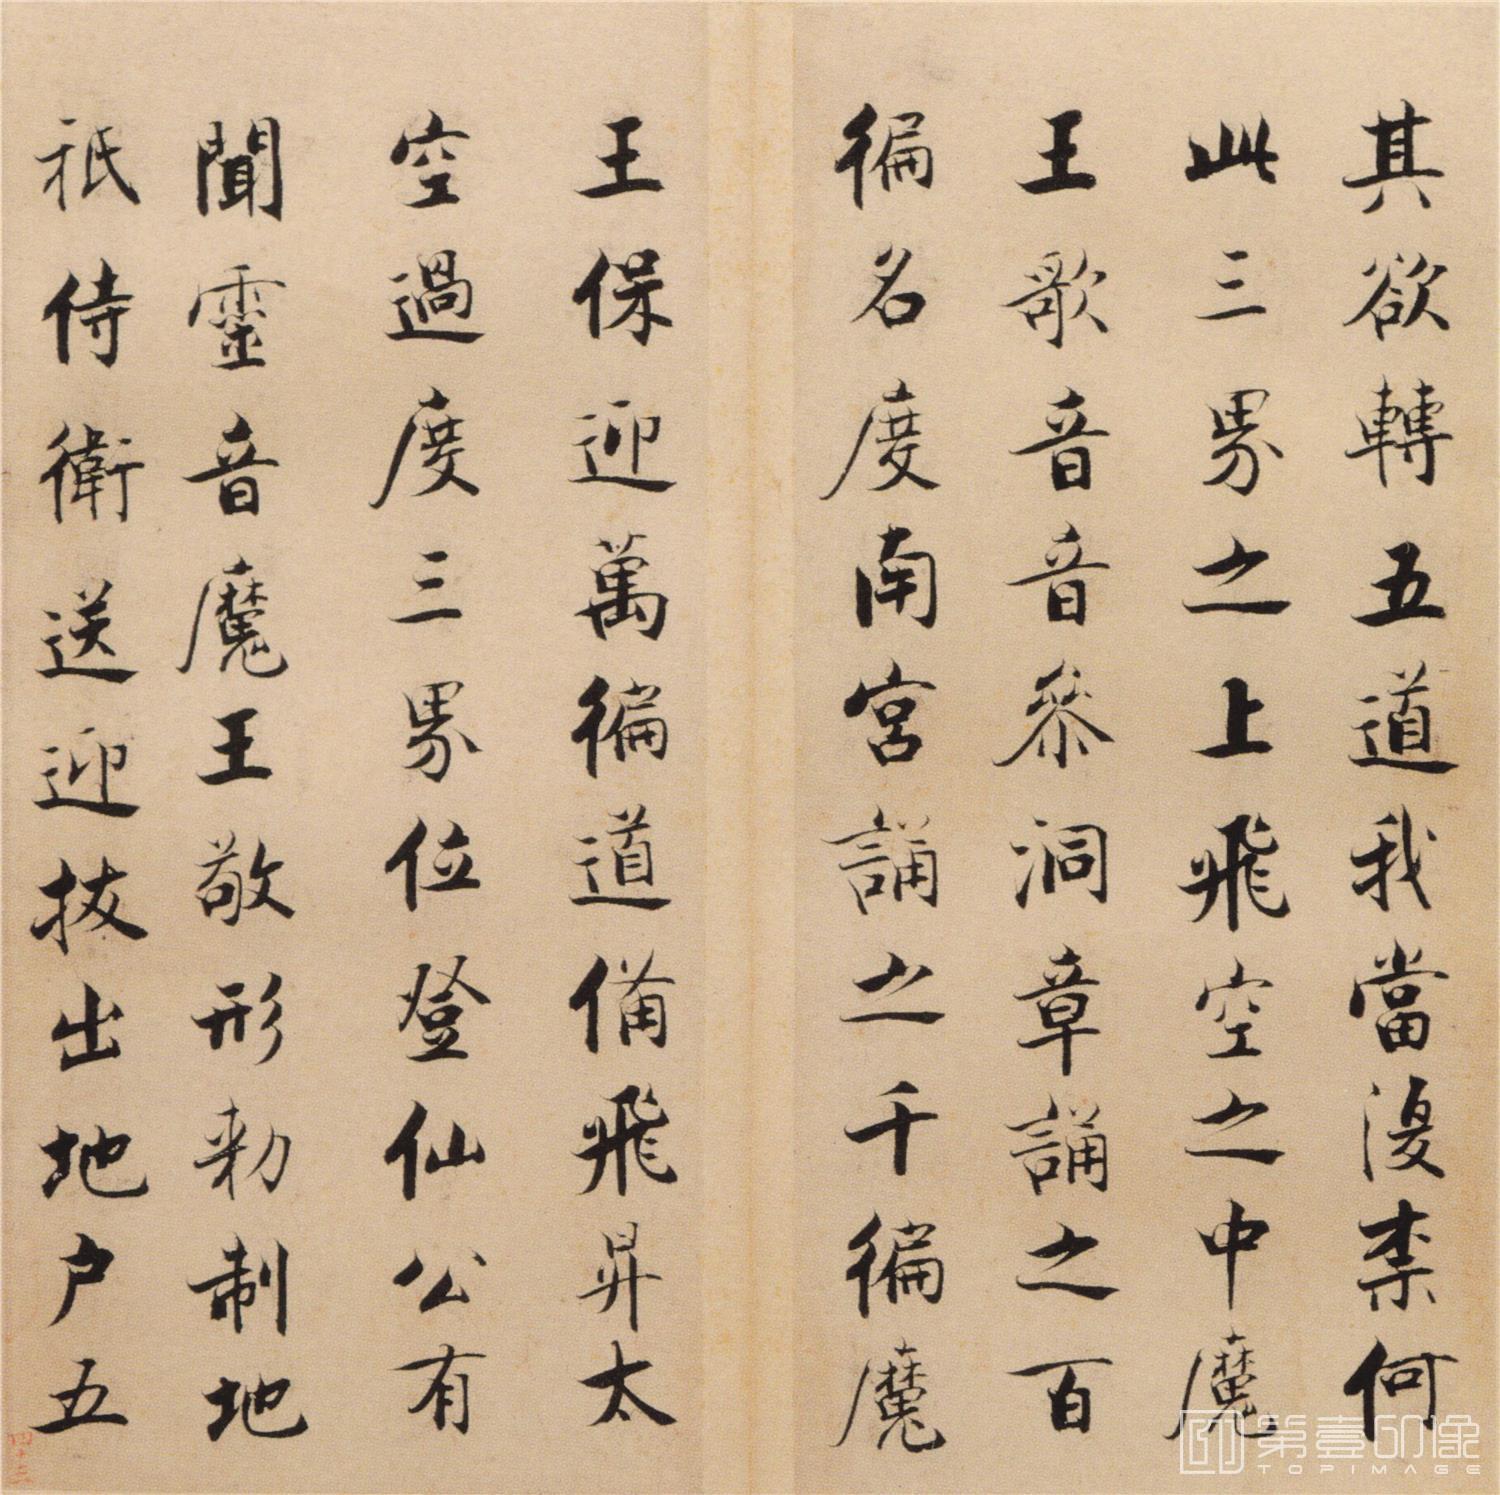 其欲轉五道我當復柰何
此三界之上飛空之中魔
王歌音音參洞章誦之百
徧名度南宮誦之千徧魔
王保迎萬徧道備飛昇太
空過度三界位登仙公有
聞靈音魔王敬形勑制地
祇侍衛送迎拔出地户五
四十三
第壹印像
TOPIMAGE